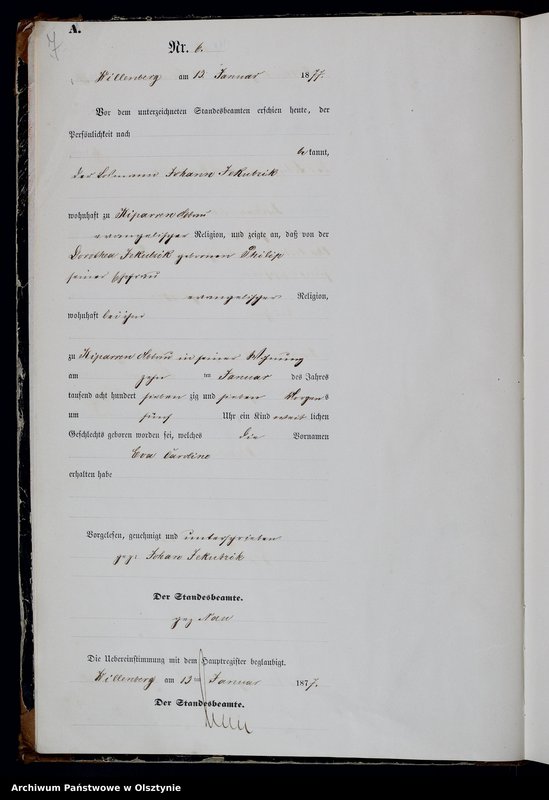 A.
Nr. 6.
Willenberg am 13 Januar 1877.
Vor dem unterzeichneten Standesbeamten erschien heute, der
Persönlichkeit nach
be kannt,
der Johann Jekubzik
wohnhaft zu Kiparren
evangelischer Religion, und zeigte an, daß von der
Dorothea Jekubzik geborenen Philip
seiner Ehefrau
evangelischer Religion,
wohnhaft bei ihm
zu Kiparren in seiner Wohnung
am zehn ten Januar des Jahres
tausend acht hundert sieben zig und sieben Morgens
um fünf Uhr ein Kind weib lichen
Geschlechts geboren worden sei, welches die Vornamen
Eva Cardine
erhalten habe
Vorgelesen, genehmigt und unterschrieben
gez. Johan Jekubzik
Der Standesbeamte.
gez Nau
Die Uebereinstimmung mit dem Hauptregister beglaubigt.
Willenberg am 13 ten Januar 1877.
Der Standesbeamte.
Nau
Archiwum Państwowe w Olsztynie